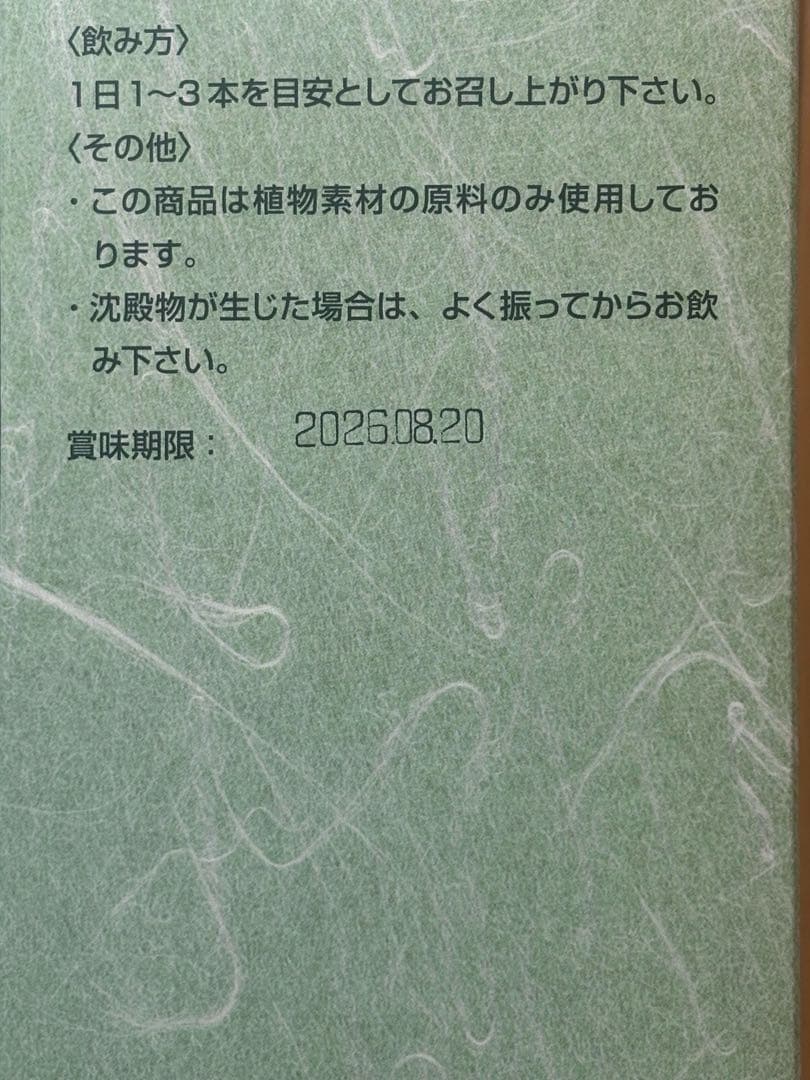 〈飲み方〉
1日1〜3本を目安としてお召し上がり下さい。
〈その他〉
・この商品は植物素材の原料のみ使用してお
ります。
・沈殿物が生じた場合は、よく振ってからお飲
み下さい。
賞味期限： 2026.08.20